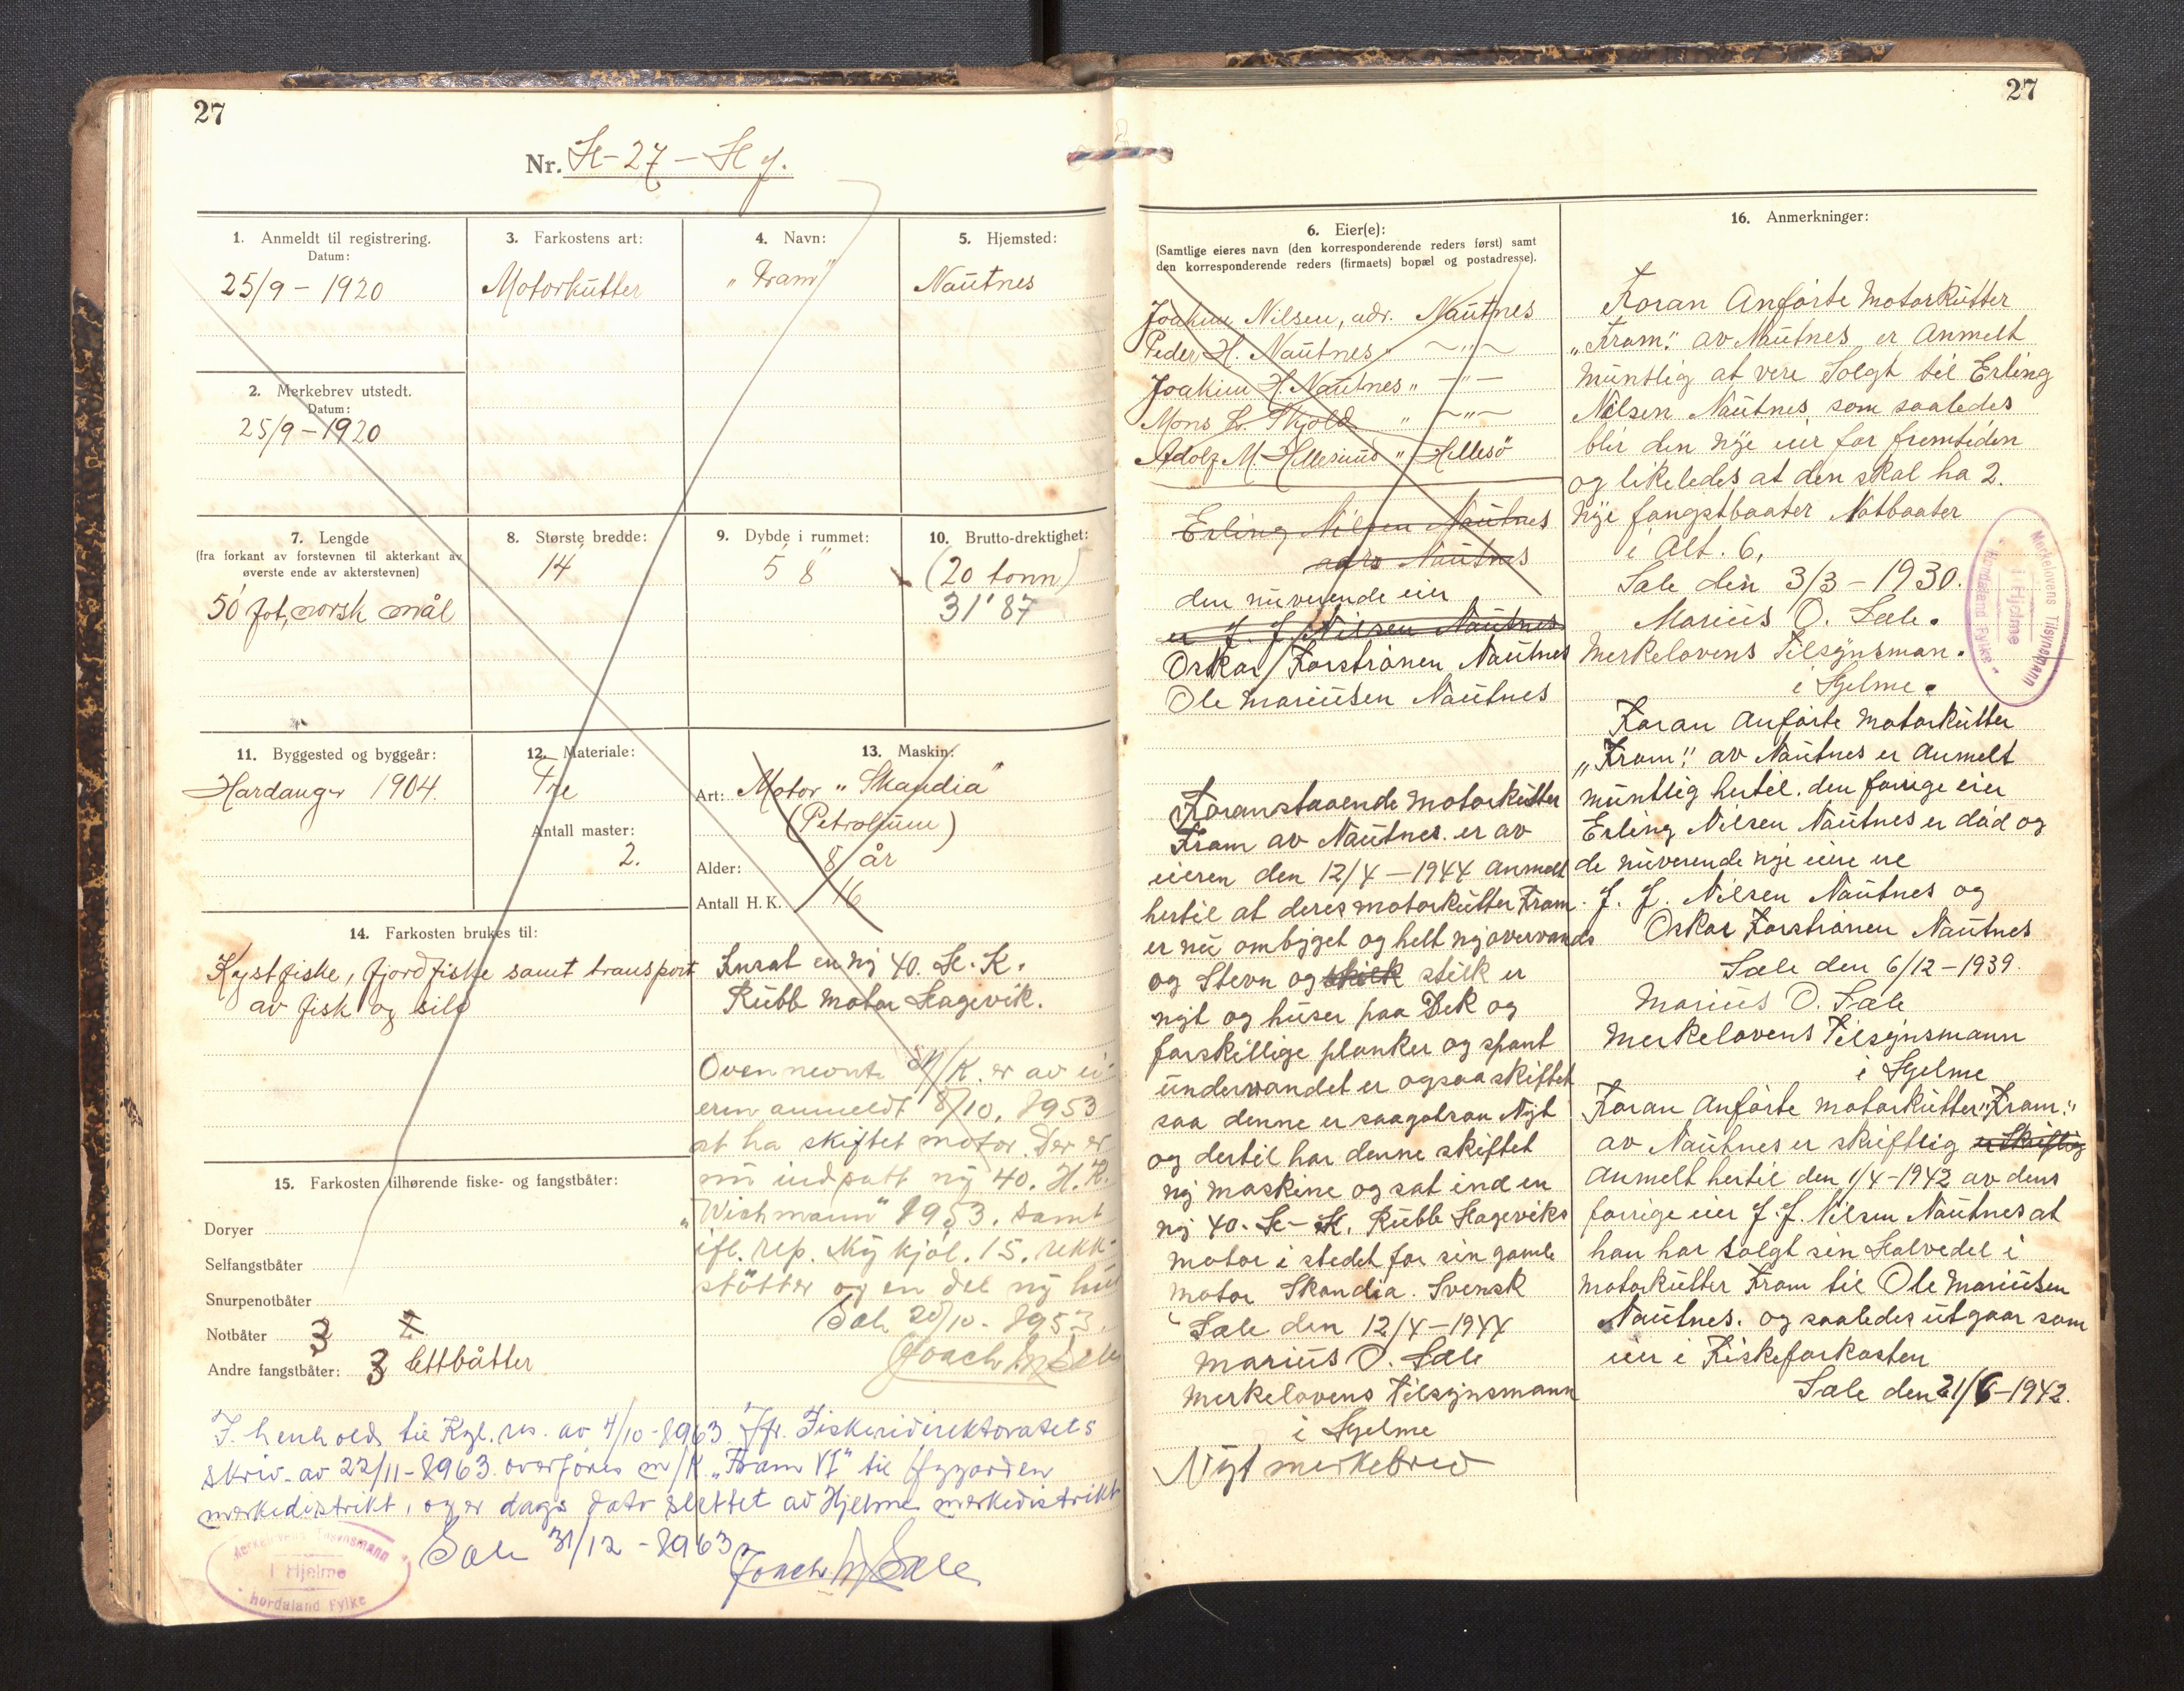 27
Nr. H-27-Hj.
1. Anmeldt til registrering.
Datum:
25/9 - 1920
2. Merkebrev utstedt.
Datum:
25/9 - 1920
3. Farkostens art:
Motorkutter
4. Navn:
"Fram"
5. Hjemsted:
Nautnes
7. Lengde
(fra forkant av forstevnen til akterkant av
øverste ende av akterstevnen)
50 fot, norsk mål
8. Største bredde:
14'
9. Dybde i rummet:
5' 8"
10. Brutto-drektighet:
(20 tonn)
31'87
11. Byggested og byggeår:
Hardanger 1904.
12. Materiale:
Tre
Antall master:
2.
13. Maskin:
Art: Motor "Skandia"
(Petroleum)
Alder: 8 år
Antall H. K. 16
Insat en ny 40. H. K.
Rubb Motor Hagevik.
Ovennevnte M/K. er av ei-
eren anmeldt 8/10. 1953
at ha skiftet motor. Der er
nu indsatt ny 40. H.K.
"Wichmann" 1953. samt
ifl. rep. Ny kjøl. 15. rekk-
støtter og en del ny hud
Sæle 20/10. 1953.
Joach. M. Sæle
14. Farkosten brukes til:
Kystfiske, fjordfiske samt transport
av fisk og sild
15. Farkosten tilhørende fiske- og fangstbåter:
Doryer
Selfangstbåter
Snurpenotbåter
Notbåter 3 2
Andre fangstbåter: 3 lettbåtter
I. henhold til Kgl. res. av 4/10-1963. Jfr. Fiskeridirektoratets
skriv. av 22/11-1963. overføres m/K. "Fram VI" til Øygarden
merkedistrikt, og er dags dato slettet av Hjelme merkedistrikt
Sæle 31/12 - 1963
Joach. M. Sæle
Merkelovens Tilsynsmann
i Hjelme
Hordaland Fylke
27
6. Eier(e):
(Samtlige eieres navn (den korresponderende reders først) samt
den korresponderende reders (firmaets) bopæl og postadresse).
Joakim Nilsen, adr. Nautnes
Peder H. Nautnes " ~"~
Joakim H. Nautnes " -"-
Mons L. Skjold " ~"~
Adolf M. Hillesund " Hellesö
Erling Nilsen Nautnes
adrs Nautnes
den nuverende eier
er J. J. Nilsen Nautnes
Oskar Torstrånen Nautnes
Ole Mariusen Nautnes
Foranstaaende Motorkutter
Fram av Nautnes. er av
eieren den 12/4 - 1944 Anmelt
hertil at deres motorkutter Fram.
er nu ombygget og helt ny overvands
og Stevn og skilk stilk er
nyt og huser paa Dek og
forskillige planker og spant
undervandet er ogsaa skiftet
saa denne er saagotsom Nyt
og dertil har denne skiftet
ny maskine og sat ind en
ny 40. H-K. Rubb Hageviks
motor i stedet for sin gamle
motor Skandia. Svensk
Sæle den 12/4 - 1944
Marius O. Sæle
Merkelovens Tilsynsmann
i Hjelme
Nyt merkebrev
16. Anmerkninger:
Foran Anførte Motorkutter
"Fram". av Nautnes, er Anmelt
Muntlig at vere Solgt til Erling
Nilsen Nautnes som saaledes
blir den nye eier for fremtiden
og likeledes at den skal ha 2.
nye fangstbaater Notbaater
i Alt. 6,
Sæle den 3/3 - 1930.
Marius O. Sæle.
Merkelovens Tilsynsman.
i Hjelme.
Merkelovens Tilsynsmann
i Hjelme
Hordaland Fylke
Foran Anførte Motorkutter
"Fram". av Nautnes er Anmelt
muntlig hertil. den forrige eier
Erling Nilsen Nautnes er død og
de nuverende nye eiere ere
J. J. Nilsen Nautnes og
Oskar Torstrånen Nautnes
Sæle den 6/12 - 1939.
Marius O. Sæle
Merkelovens Tilsynsmann
i Hjelme
Foran Anførte Motorkutter "Fram."
av Nautnes er skriftlig er Skriftlig
Anmelt hertil den 1/4 - 1942 av dens
forrige eier J. J. Nilsen Nautnes at
han har solgt sin Halvedel i
Motorkutter Fram til Ole Mariusen
Nautnes. og saaledes utgaar som
eier i Fiskefarkosten
Sæle den 21/6 - 1942.